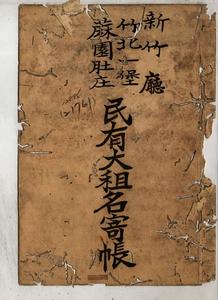 新竹廳
竹北一堡
蔴園肚庄
民有大租名寄帳